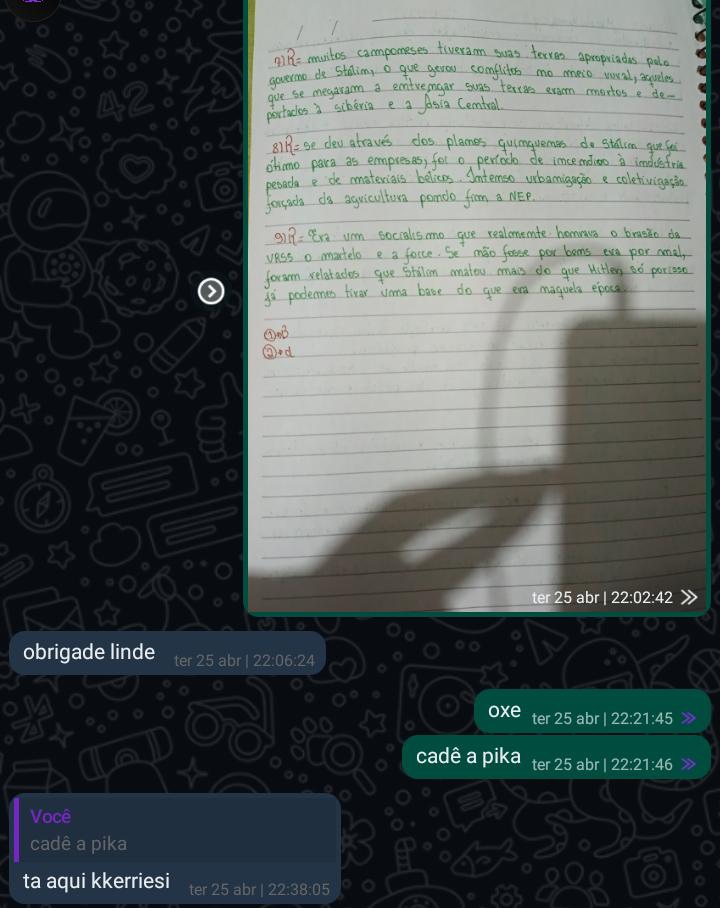 7) R= muitos campomeses tiveram suas terras apropriadas pelo
governo de Stálim, o que gerou comflitos mo meio rural, aqueles
que se megaram a emtremgar suas terras eram mortos e de-
portados à sibéria e a Ásia Cemtral.
8) R= se deu através dos plamos quimquemais de Stálim que foi
ótimo para as empresas, foi o período de imcemdivo à imdústria
pesada e de materiais bélicos. Imtemso urbamigação e coletivigação
forçada da agricultura pomdo fim a NEP.
9) R= Era um socialismo que realmemte homrava o brasão da
URSS o martelo e a foice. Se mão fosse por bems era por mal,
foram relatados que Stálim matou mais do que Hitler, só por isso
já podemos tirar uma base do que era maquela época.
①
②→d
ter 25 abr | 22:02:42
obrigade linde ter 25 abr | 22:06:24
oxe ter 25 abr | 22:21:45
cadê a pika ter 25 abr | 22:21:46
Você
cadê a pika
ta aqui kkerriesi ter 25 abr | 22:38:05